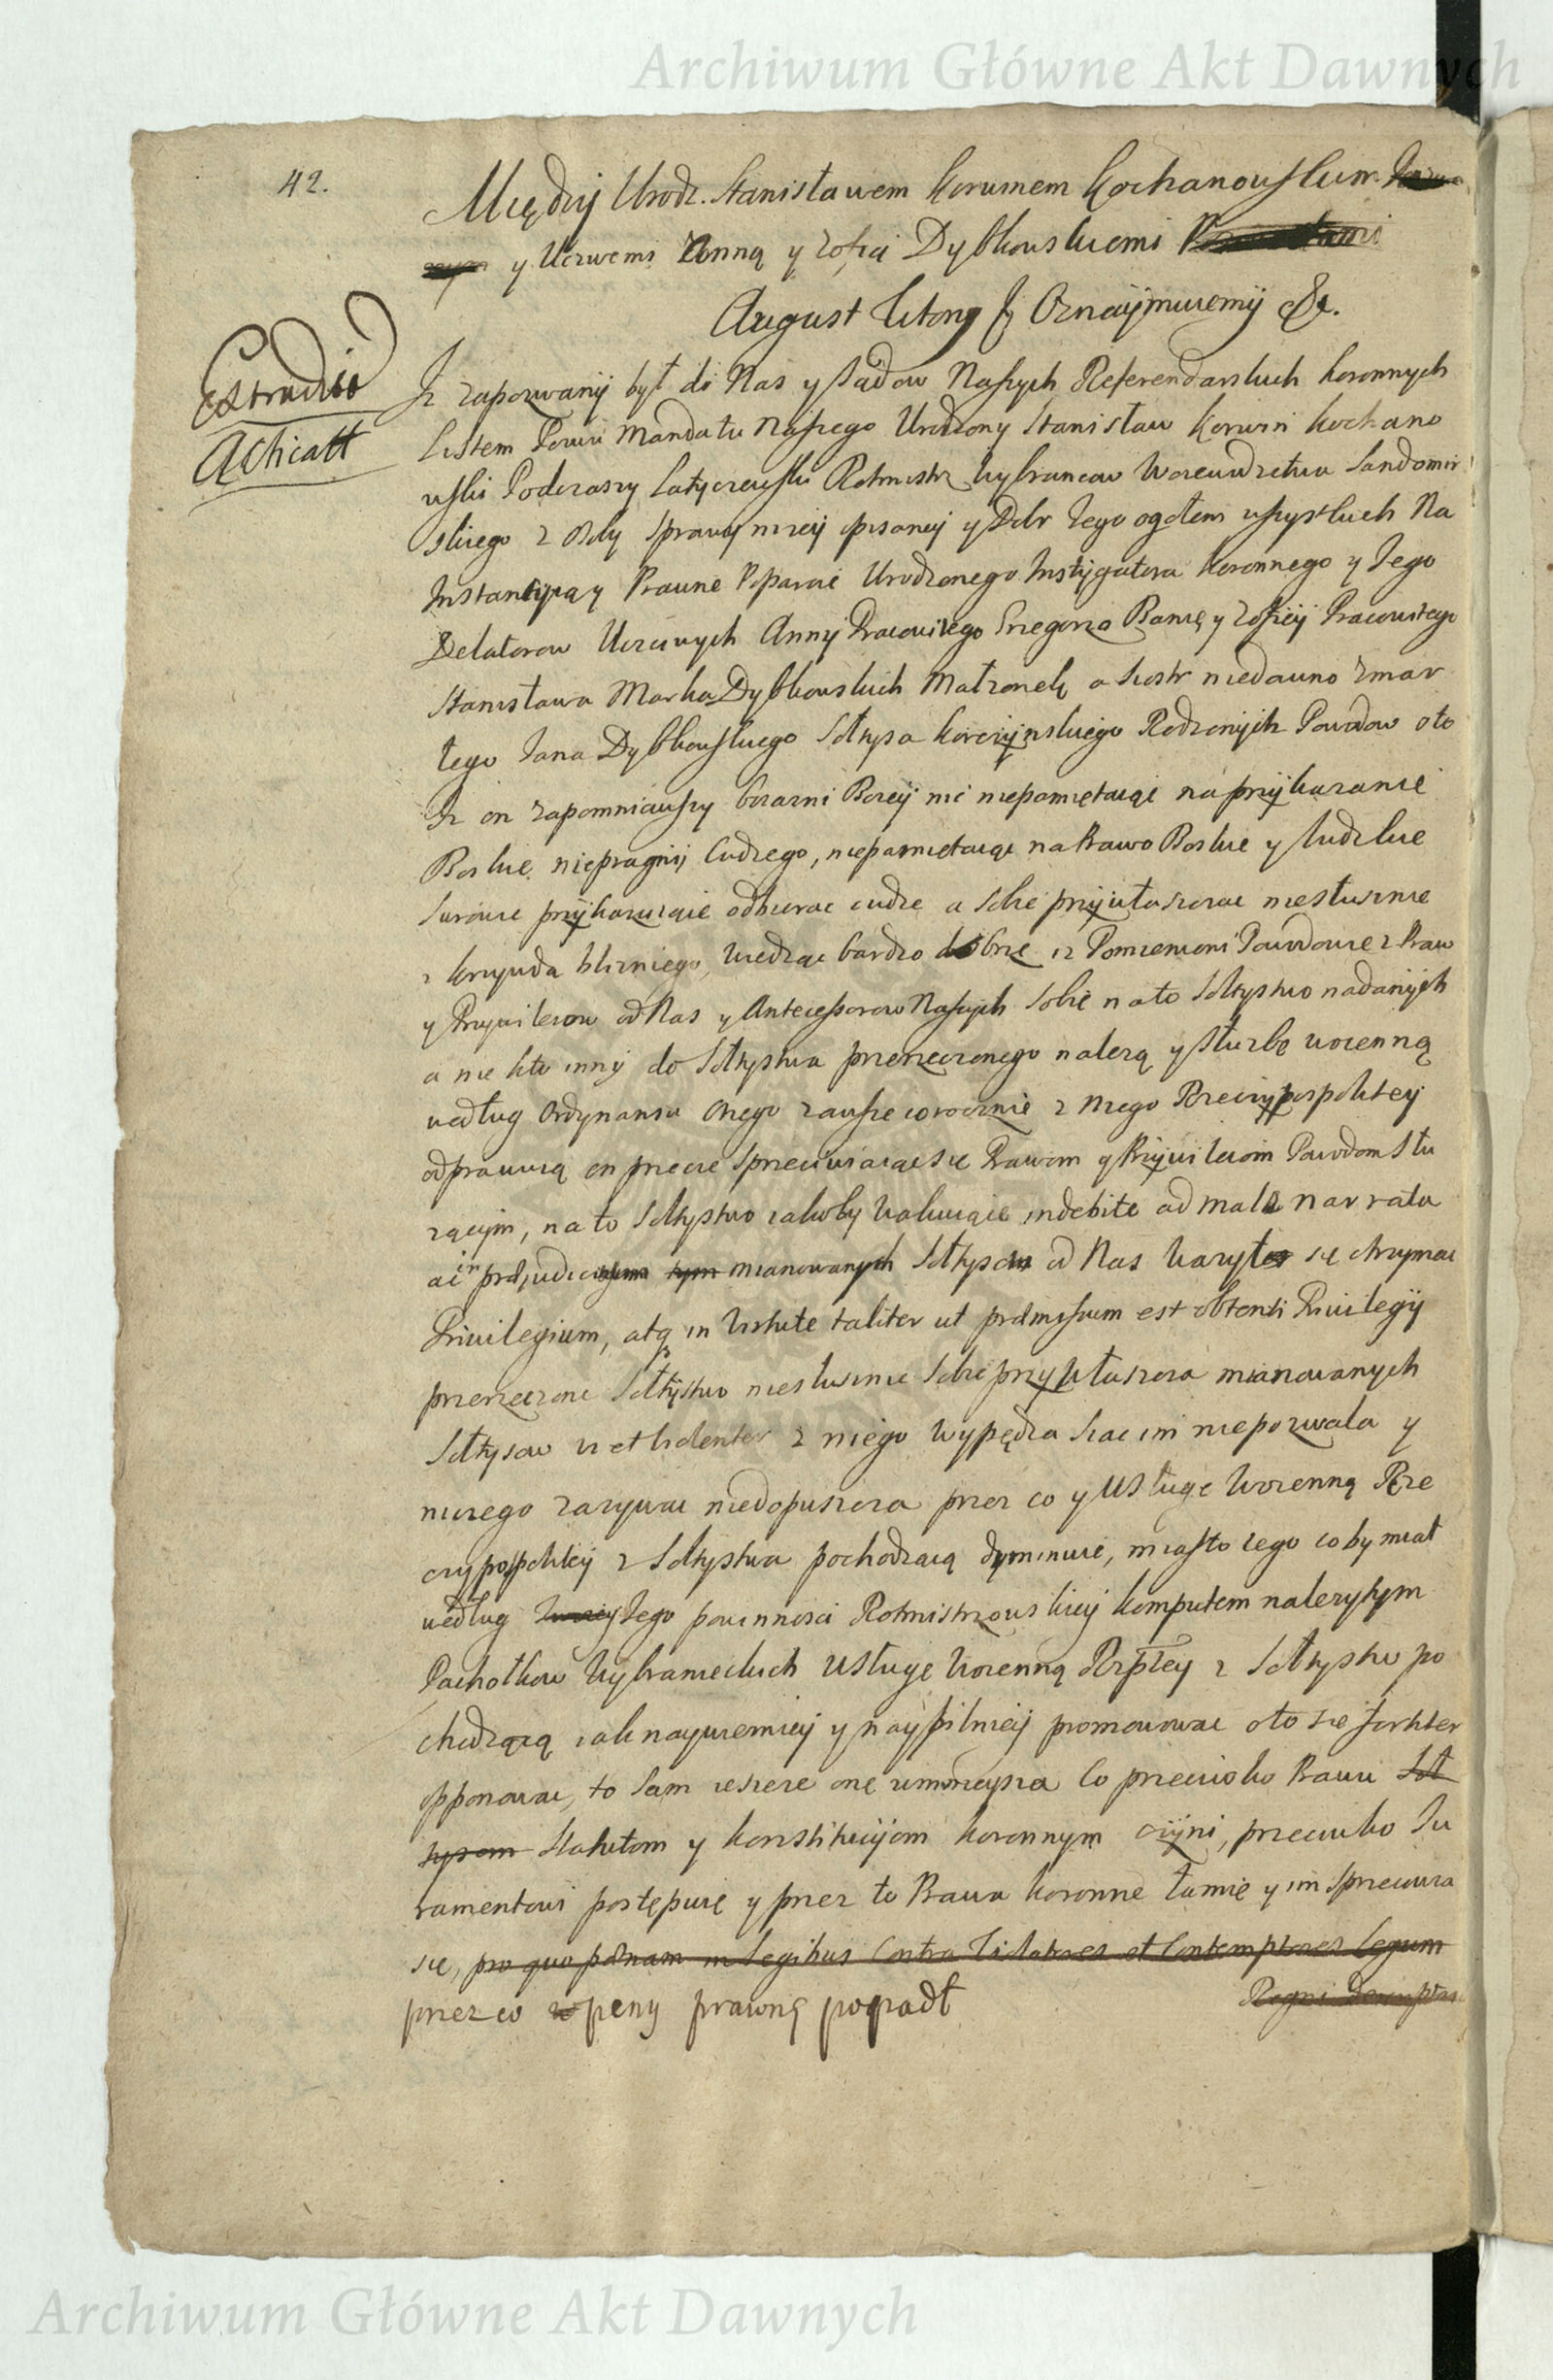 Archiwum Główne Akt Dawnych
42.
Między Urodz. Stanisławem Korwinem Kochanowskim
y Uczciwemi Anną y Zofią Dybkowskiemi
August Wtory & Oznaymuiemy &c.
Extradit
Acticatt
Iz zapozwany był do Nas y Sądow Naszych Referendarskich Koronnych
Listem Pozwu Mandatu Naszego Urodzony Stanisław Korwin Kochano
wski Podczaszy Latyczewski Rotmistrz Wybrancow Woiewodztwa Sandomir
skiego z Osoby sprawy nizey opisaney y Dobr Jego ogołem wszystkich Na
Instancyią y Prawne Poparcie Urodzonego Instygatora Koronnego y Jego
Delatorow Uczciwych Anny Pracowitego Grzegorza Banię y Zofiey Pracowitego
Stanisława Marka Dybkowskich Małzonek a Siostr niedawno zmar
łego Jana Dybkowskiego Sołtysa Korczynskiego Rodzonych Powodow oto
Iz on zapomniawszy boiazni Bozey nic niepamiętaiąc na przykazanie
Boskie niepragnij Cudzego, niepamiętaiąc na Prawo Boskie y ludzkie
surowie przykazuiące odbierac cudze a sobie przywłaszczac niesłusznie
z krzywdą blizniego, wiedząc bardzo dobrze iz Pomienieni Powodowie z Praw
y Przywileiow od Nas y Antecessorow Naszych Sobie na to Sołtystwo nadanych
a nie kto inny do Sołtystwa przerzeczonego nalezą y Słuzbę woienną
według Ordynansu onego zawsze corocznie z niego Rzeczypospolitey
odprawuią on przecie sprzeciwiaiąc się Prawom y Przywileiom Powodom Słu
zącym, na to Sołtystwo iakoby wakuiące indebite ad male narrata
ac in praejudicium mianowanych Sołtysow od Nas wazył się otrzymac
Privilegium, atq in virtute taliter ut praemissum est obtenti Privilegij
przerzeczone Sołtystwo niesłusznie sobie przywłaszcza mianowanych
Sołtysow violenter z niego wypędza siac im niepozwala y
niczego zazywac niedopuszcza przez co y Usługę Woienną Rze
czypospolitey z Sołtystwa pochodzącą dyminuie, miasto tego coby miał
według Jego powinnosci Rotmistrzowskiey komputem nalezytym
Pachołkow Wybranieckich Usługę Woienną Rzpltey z Sołtystw po
chodzącą iak naywierniey y naypilniey promowowac oto się fortiter
opponowac, to sam ieszcze onę umnieysza Co przeciwko Prawu Soł
tysom Statutom y Konstitucyom Koronnym czyni, przeciwko Ju
ramentowi postępuię y przez to Prawa Koronne łamie y im sprzeciwia
się, pro quo paenam in Legibus Contra Violatores et Contemptores Legum
Regni
przez co w peny prawnę popadł
Archiwum Główne Akt Dawnych